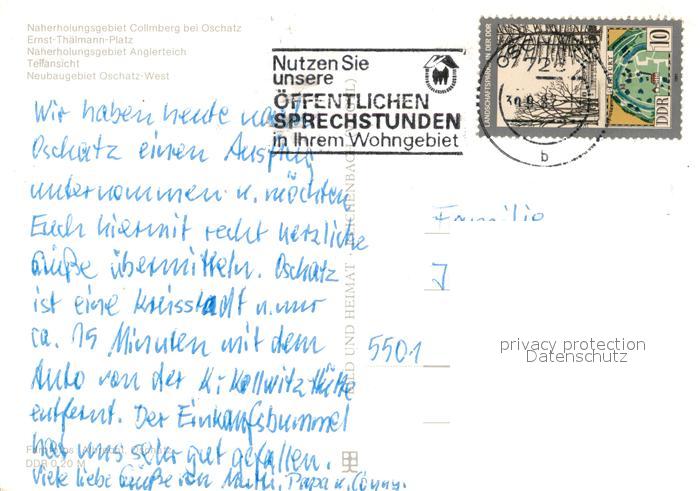 Naherholungsgebiet Collmberg bei Oschatz
Ernst-Thälmann-Platz
Naherholungsgebiet Anglerteich
Teilansicht
Neubaugebiet Oschatz-West
Nutzen Sie
unsere
ÖFFENTLICHEN
SPRECHSTUNDEN
in Ihrem Wohngebiet
DDR 10
b
Wir haben heute nach
Oschatz einen Ausflug
unternommen u. möchten
Euch hiermit recht herzliche
Grüße übermitteln. Oschatz
ist eine Kreisstadt u. nur
ca. 15 Minuten mit dem
Auto von der K. Kollwitz Hütte
entfernt. Der Einkaufsbummel
hat uns sehr gut gefallen.
Viele liebe Grüße von Mutti, Papa u. Conny.
Familie
J
5501
BILD UND HEIMAT REICHENBACH
DDR 0,20 M
privacy protection
Datenschutz